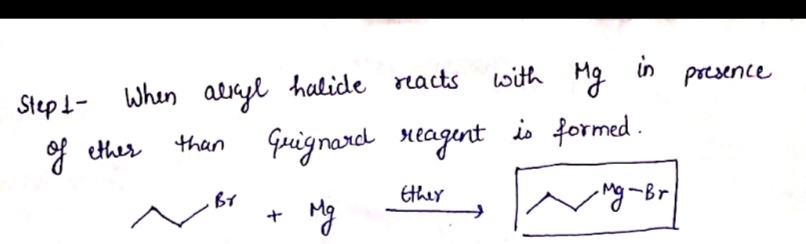 Step 1- When alkyl halide reacts with Mg in presence
of ether than Grignard reagent is formed.
Br + Mg Ether Mg-Br